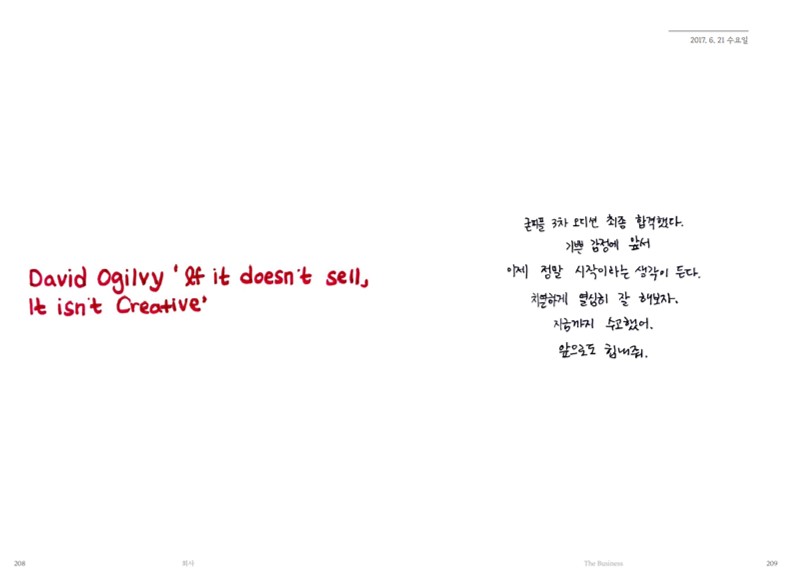 David Ogilvy 'If it doesn't sell,
It isn't Creative'
208
회사
2017. 6. 21 수요일
굳피플 3차 오디션 최종 합격했다.
기쁜 감정에 앞서
이제 정말 시작이라는 생각이 든다.
치열하게 열심히 잘 해보자.
지금까지 수고했어.
앞으로도 힘내줘.
The Business
209